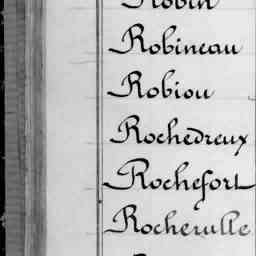 Robin
Robineau
Robiou
Rochedreux
Rochefort
Rocherulle